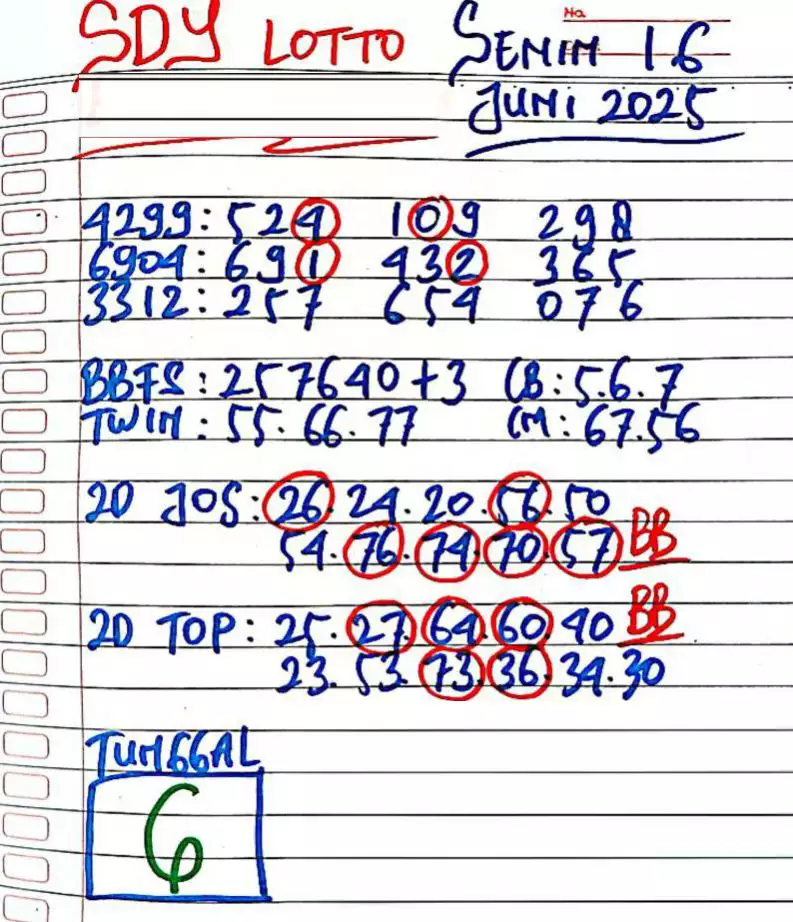 No
SDY LOTTO SENIN 16
JUNI 2025
4299: 524 109 298
6904: 691 432 365
3312: 257 654 076
BBFS: 257640+3 CB: 5.6.7
TWIN: 55.66.77 CM: 67.56
2D JOS: 26.24.20.56.50
54.76.74.70.57 BB
2D TOP: 25.27.64.60.40 BB
23.53.73.36.34.30
TUNGGAL
6